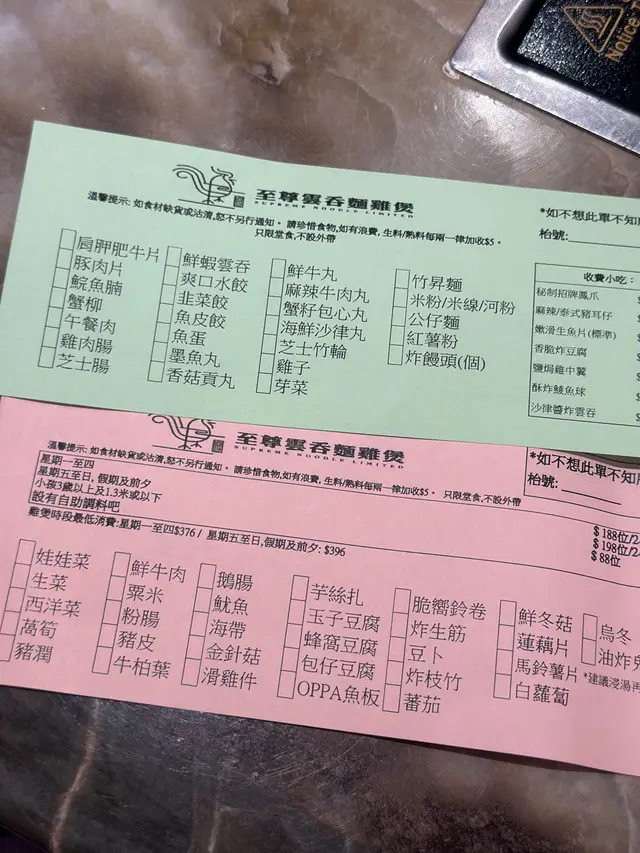 Notice
至尊雲吞麵雞煲
SUPREME NOODLE LIMITED
溫馨提示: 如食材缺貨或沽清,恕不另行通知。 請珍惜食物,如有浪費, 生料/熟料每兩一律加收$5。
只限堂食,不設外帶
*如不想此單不知
枱號:
肩胛肥牛片
豚肉片
鯇魚腩
蟹柳
午餐肉
雞肉腸
芝士腸
鮮蝦雲吞
爽口水餃
韭菜餃
魚皮餃
魚蛋
墨魚丸
香菇貢丸
鮮牛丸
麻辣牛肉丸
蟹籽包心丸
海鮮沙律丸
芝士竹輪
雞子
芽菜
竹昇麵
米粉/米線/河粉
公仔麵
紅薯粉
炸饅頭(個)
收費小吃:
秘制招牌鳳爪
麻辣/泰式豬耳仔
嫩滑生魚片(標準)
香脆炸豆腐
鹽焗雞中翼
酥炸鯪魚球
沙律醬炸雲吞
至尊雲吞麵雞煲
SUPREME NOODLE LIMITED
溫馨提示: 如食材缺貨或沽清,恕不另行通知。 請珍惜食物,如有浪費, 生料/熟料每兩一律加收$5。 只限堂食,不設外帶
*如不想此單不知
枱號:
星期一至四
星期五至日, 假期及前夕
小孩3歲以上及1.3米或以下
設有自助調料吧
$188位/2
$198位/2
$88位
雞煲時段最低消費:星期一至四$376 / 星期五至日,假期及前夕: $396
娃娃菜
生菜
西洋菜
萵筍
豬潤
鮮牛肉
粟米
粉腸
豬皮
牛柏葉
鵝腸
魷魚
海帶
金針菇
滑雞件
芋絲扎
玉子豆腐
蜂窩豆腐
包仔豆腐
OPPA魚板
脆嚮鈴卷
炸生筋
豆卜
炸枝竹
蕃茄
鮮冬菇
蓮藕片
馬鈴薯片
白蘿蔔
烏冬
油炸
*建議浸湯再